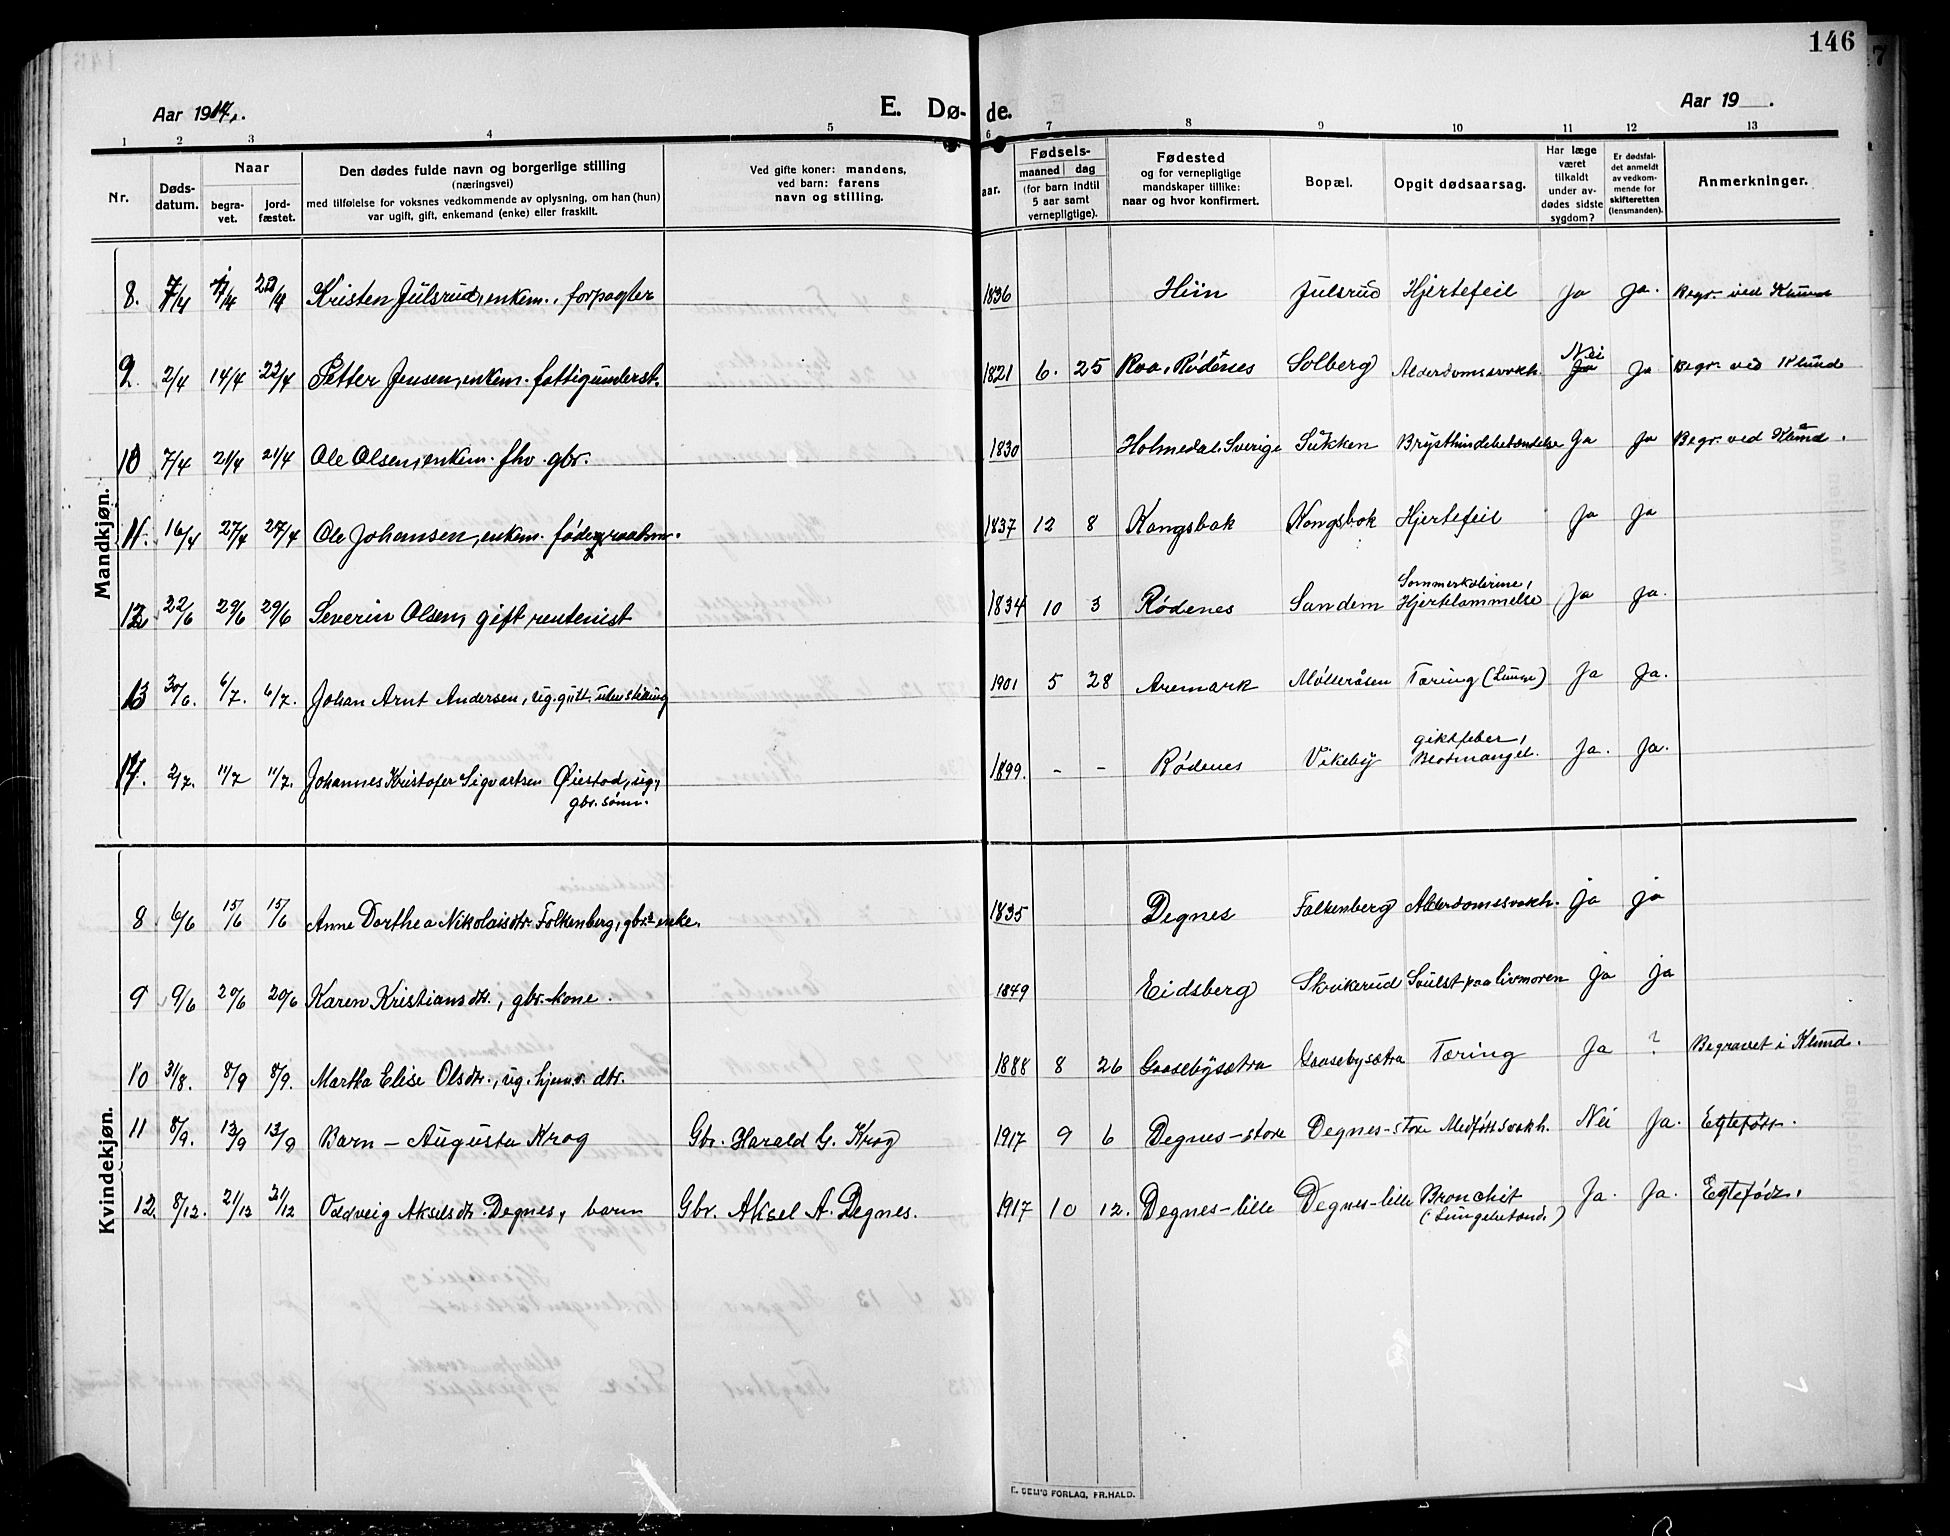 146
Aar 1917.
E. Dø-de.
Aar 19 .
1 2 3 4 5 6 7 8 9 10 11 12 13
Nr.
Døds-datum.
Naar
begra-vet.
jord-fæstet.
Den dødes fulde navn og borgerlige stilling
(næringsvei)
med tilføielse for voksnes vedkommende av oplysning, om han (hun)
var ugift, gift, enkemand (enke) eller fraskilt.
Ved gifte koner: mandens,
ved barn: farens
navn og stilling.
aar.
Fødsels-
maaned dag
(for barn indtil
5 aar samt
vernepligtige).
Fødested
og for vernepligtige
mandskaper tillike:
naar og hvor konfirmert.
Bopæl.
Opgit dødsaarsag.
Har læge
været
tilkaldt
under av-
dødes sidste
sygdom?
Er dødsfal-
det anmeldt
av vedkom-
mende for
skifteretten
(lensmanden).
Anmerkninger.
Mandkjøn.
8. 7/4 Kristen Julsrud, enkem., forpagter 1836 Hiin Julsrud Hjertefeil Ja Ja. Begr. ved Klund
9. 2/4 14/4 22/4 Petter Jensen, enkem. fattigunderst. 1821 6. 25 Raa, Rødenes Solberg Alderdomssvakh. Nei Ja Ja Begr. ved Klund
10 7/4 21/4 21/4 Ole Olsen, enkem. fhv. gbr. 1830 Holmedal, Sverige Sukken Brysthindebetændelse Ja Ja Begr. ved Klund.
11. 16/4 27/4 27/4 Ole Johansen, enkem. føderaadsm. 1837 12 8 Kongsbok Kongsbok Hjertefeil Ja Ja
12 22/6 29/6 29/6 Severin Olsen, gift, rentenist 1834 10 3 Rødenes Sandem Sommerkolerine,
Hjertelammelse Ja Ja.
13 30/6. 6/7. 6/7. Johan Arnt Andersen, ug. gutt. uten stilling 1901 5 28 Aremark Mølleråsen Tæring (Lunge) Ja Ja.
14. 2/7. 11/7 11/7. Johannes Kristofer Sigvartsen Øiestad, ug,
gbr. sønn. 1899. - - Rødenes Vikeby giktfeber,
Blodmangel. Ja. Ja.
Kvindekjøn.
8 6/6 15/6 15/6 Anne Dorthea Nikolaisdtr. Falkenberg, gbrs enke. 1835 Degnes Falkenberg Alderdomssvakh. Ja Ja
9 9/6 20/6 20/6 Karen Kristiansdtr., gbr. kone. 1849 Eidsberg Skvikerud Svulst paa livmoren Ja Ja
10 31/8. 8/9 8/9. Martha Elise Olsdtr., ug. hjemv. dtr. 1888 8 26 Gaasebysætra Gaasebysætra Tæring Ja ? Begravet i Klund.
11 8/9. 13/9 13/9 Barn - Augusta Krog Gbr. Harald G. Krog 1917 9 6 Degnes-store Degnes-store Medfødt svakh. Nei Ja. Egtefødt.
12. 8/12. 21/12 21/12 Oddveig Akselsdtr. Degnes, barn Gbr. Aksel A. Degnes. 1917 10 12. Degnes-lille Degnes-lille Bronchit
(Lungebetænd.) Ja. Ja. Egtefødt.
FORLAG, FR.HALD.